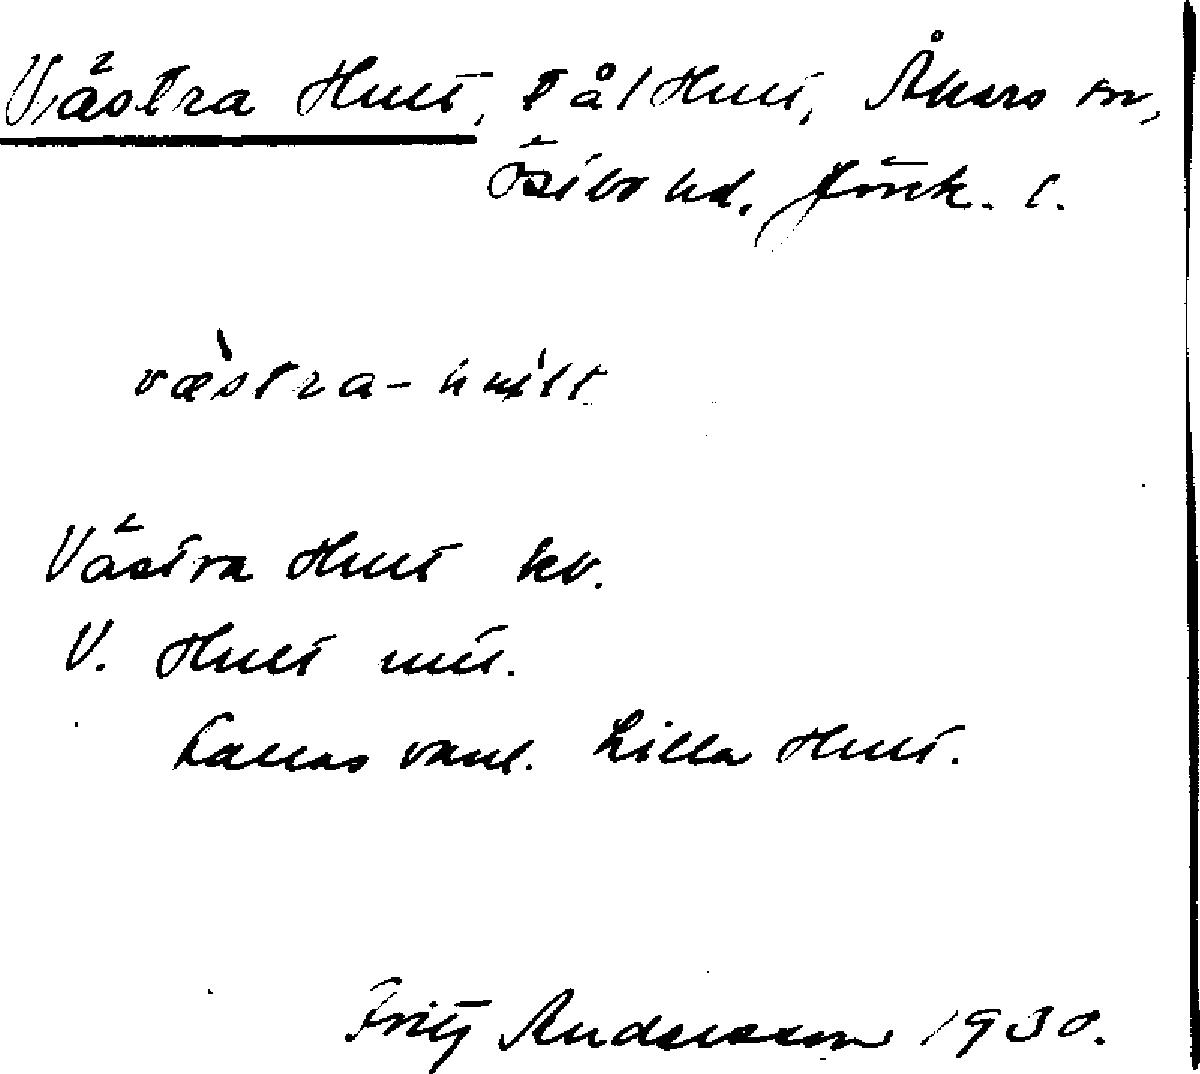 Västra Hult, t å l Hult, Åkers sn,
Östbo hd. Jönk. l.
västra-hult
Västra Hult kv.
V. Hult mtl.
Kallas vanl. Lilla Hult.
Fritz Andersson 1930.